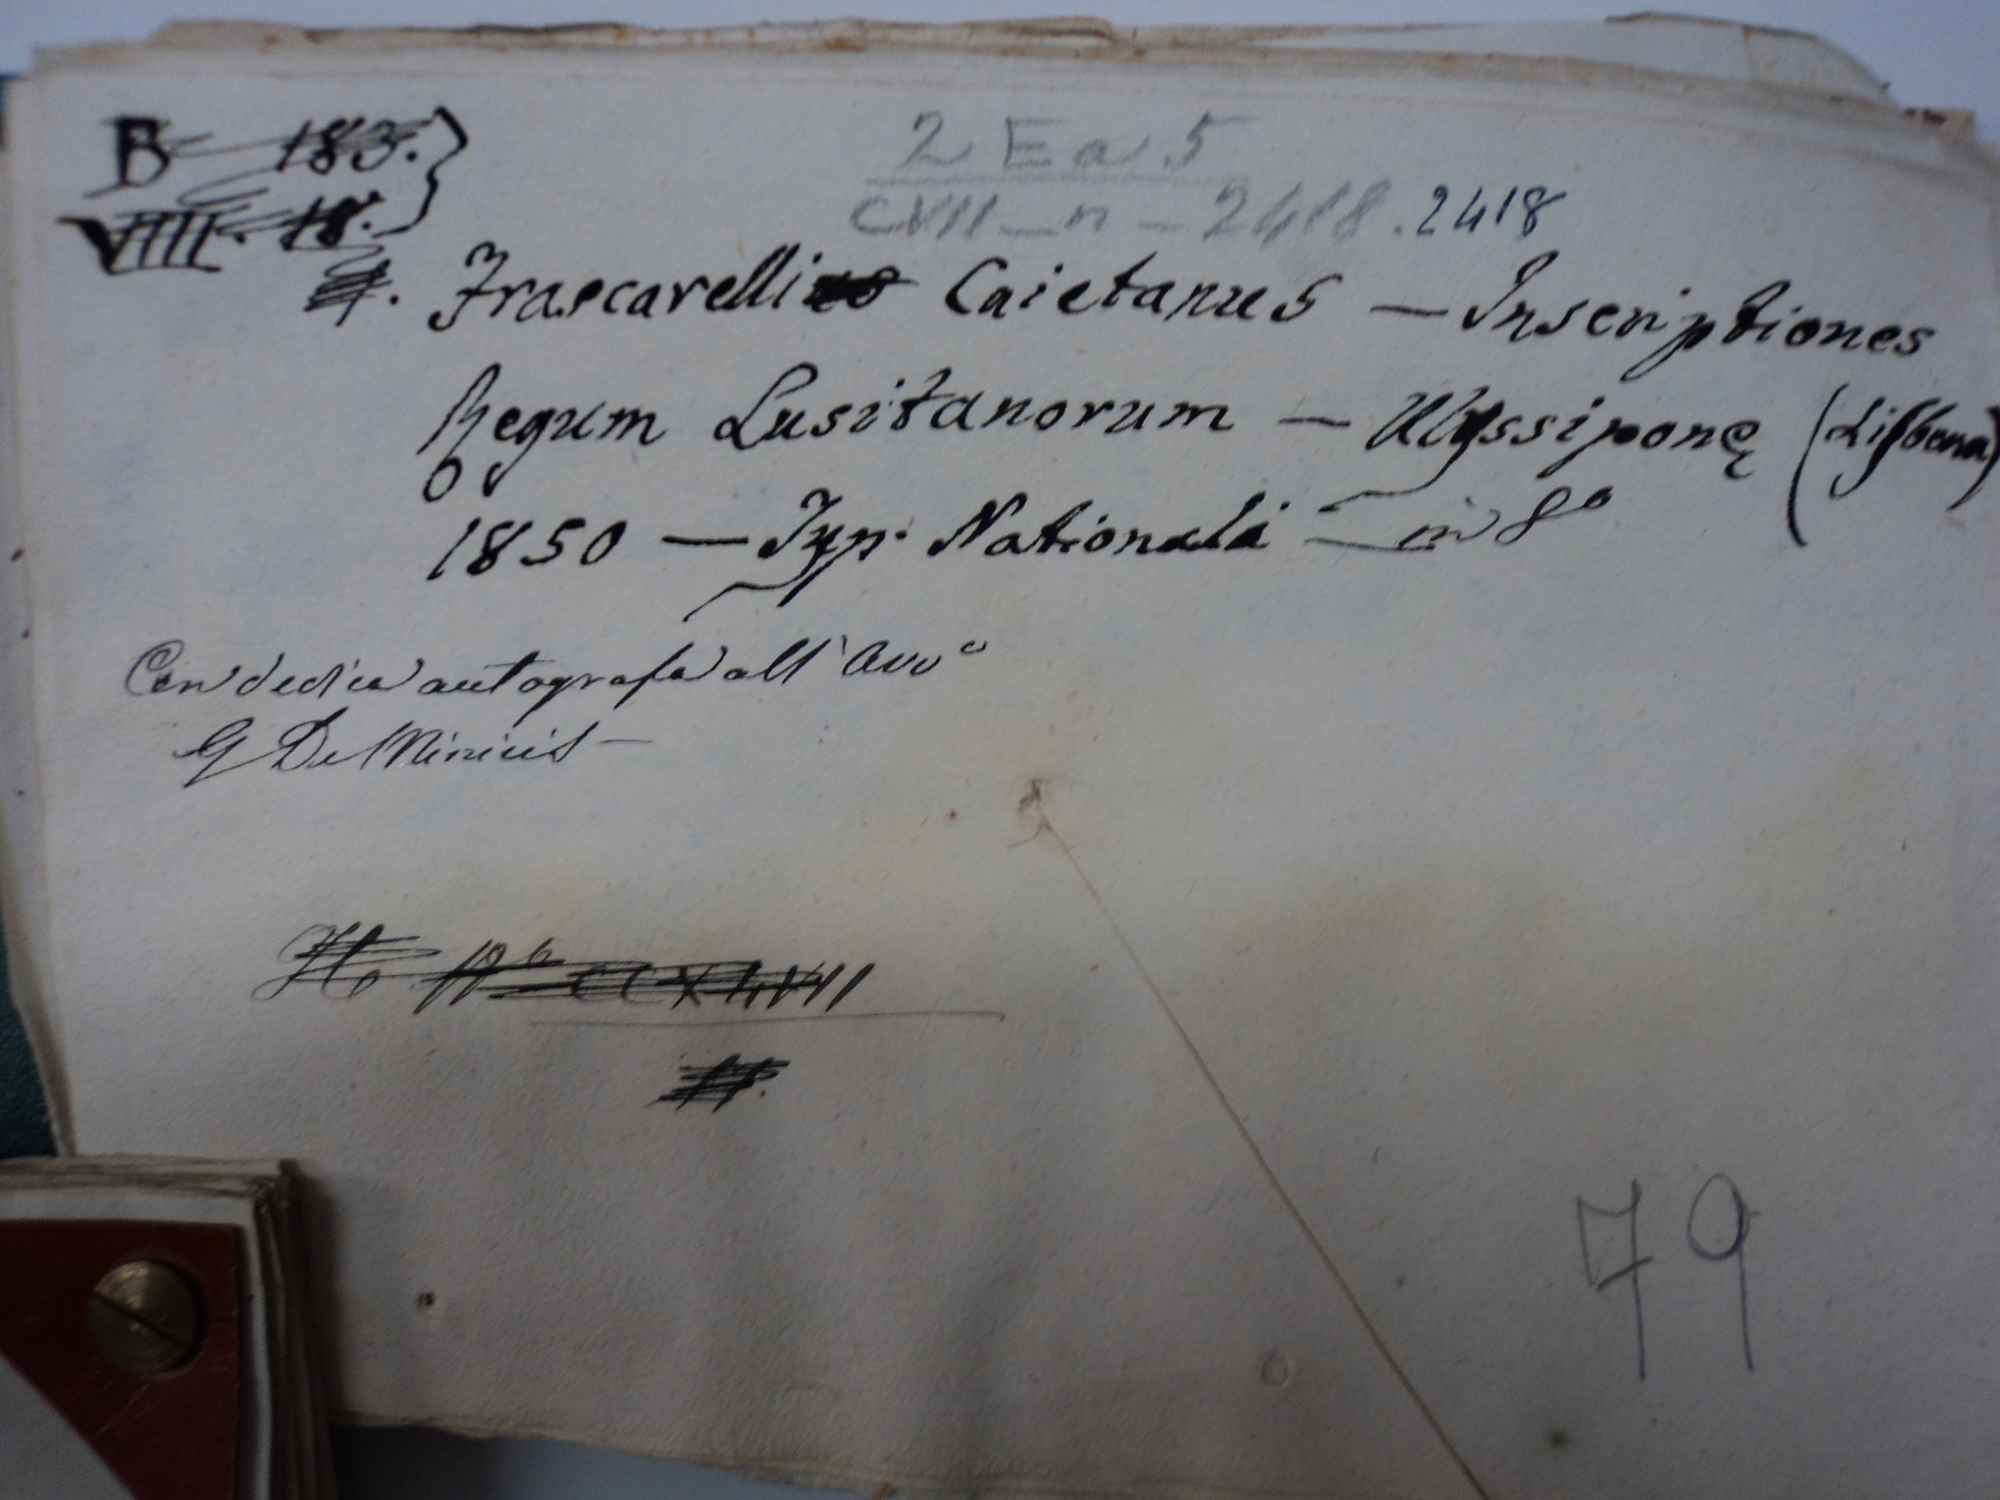 B 183.
VIIII. 18.
2 Ea 5
CVII - n - 2418 . 2418
Frascarelli Caietanus — Inscriptiones
Regum Lusitanorum — Ulyssiponę (Lisbona)
1850 — Typ. Nationali — in 8º
Con dedica autografa all' Avvº
G De Minicis —
CCXLVII
79